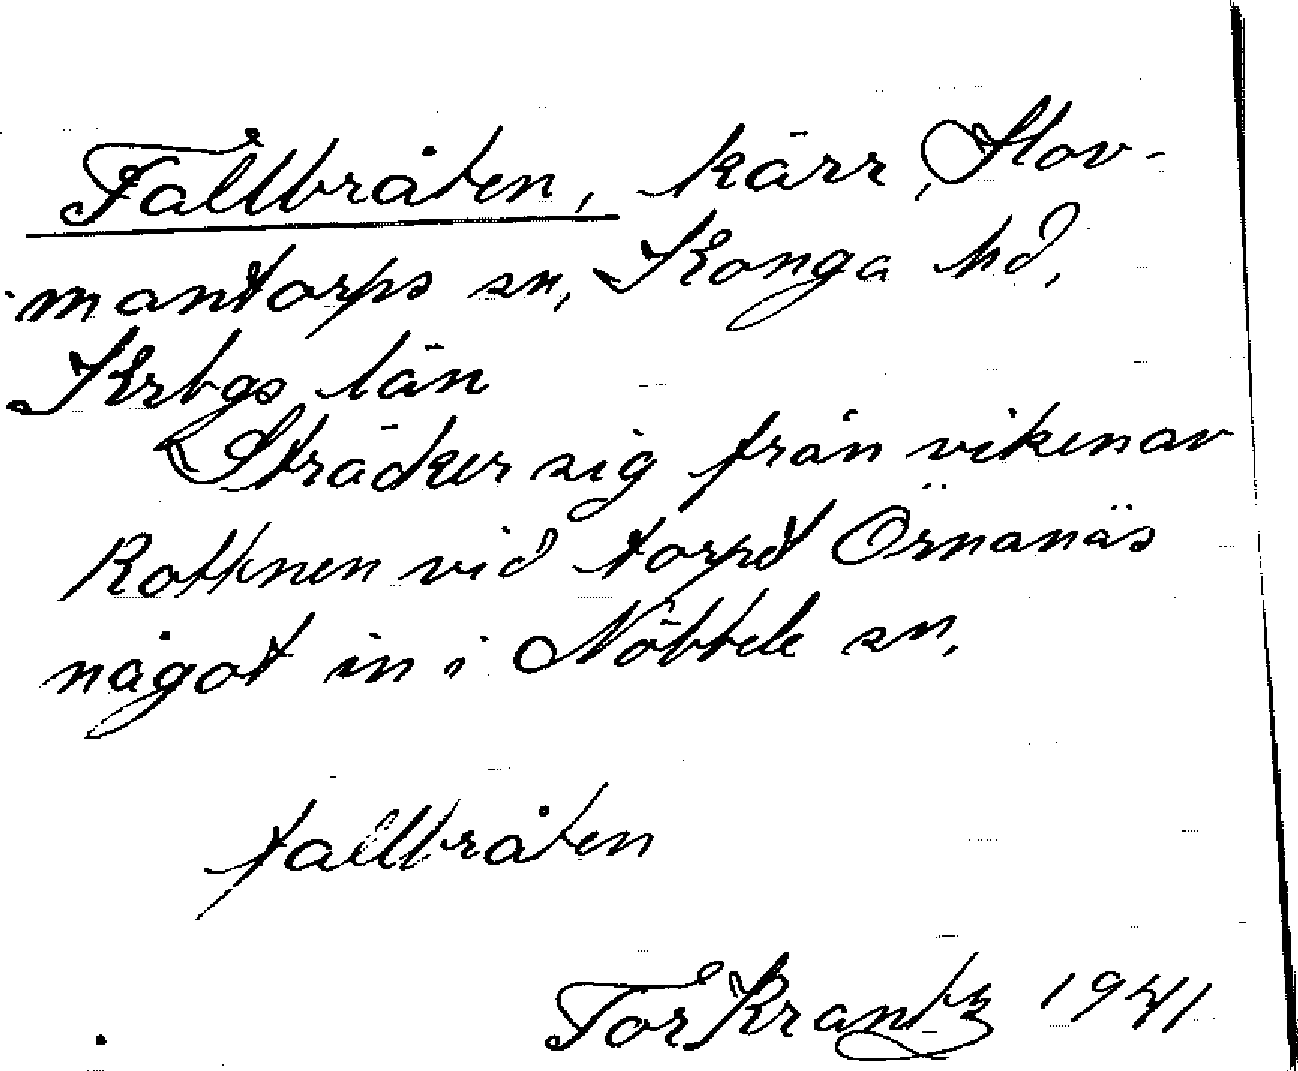 Fallbråten, kärr, Hov-
mantorps sn, Konga hd,
Krbgs län
Sträcker sig från viken av
Rottnen vid torpet Örnanäs
något in i Nöbbele sn.
fallbråten
Tor Krantz 1941